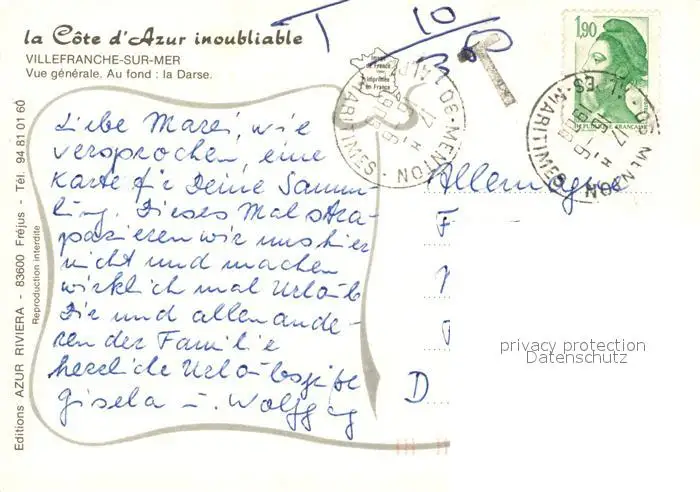 la Côte d'Azur inoubliable
VILLEFRANCHE-SUR-MER
Vue générale. Au fond : la Darse.
T 10
Image
de France
imprimée
en France
06-MENTON
ALPES-MARITIMES
17 H
1,90
REPUBLIQUE FRANÇAISE
06 MENTON
ALPES-MARITIMES
17 H
T
Liebe Marei, wie
versprochen, eine
Karte für Deine Samm-
lung. Dieses Mal stra-
pazieren wir uns hier
nicht und machen
wirklich mal Urlaub
Dir und allen ande-
ren der Familie
herzliche Urlaubsgrüße
Gisela u. Wolfgang
Allemagne
F
D
privacy protection
Datenschutz
Editions AZUR RIVIERA - 83600 Fréjus - Tél. 94 81 01 60
Reproduction interdite